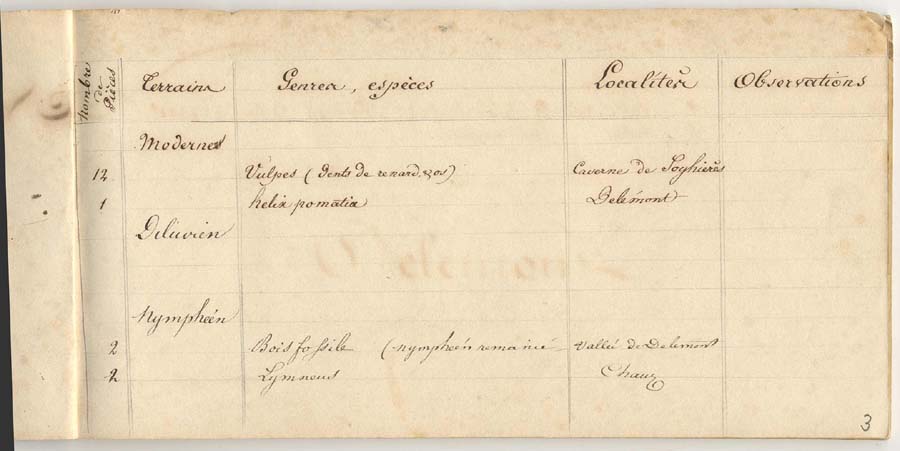 Nombre de Pièces Terrains Genres, espèces Localités Observations
Modernes
12 Vulpes (dents de renard & os) Caverne de Soyhières
1 helix pomatia Delémont
Diluvien
Nympheén
2 Bois fossile (nympheén remanié Vallée de Delemont
2 Lymneus Chaux
3